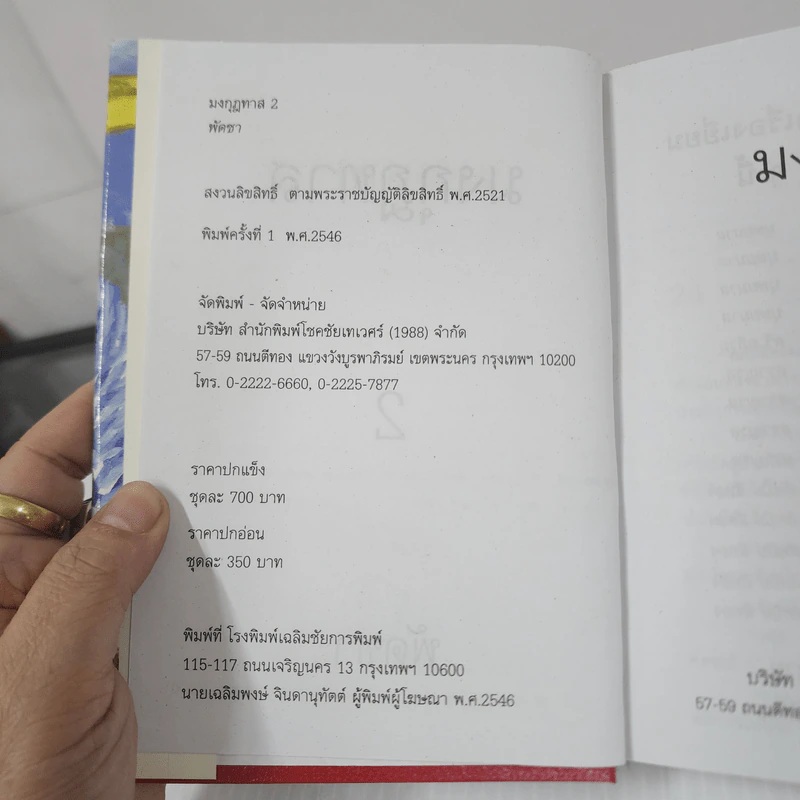 มงกุฎทาส 2
พัดชา
สงวนลิขสิทธิ์ ตามพระราชบัญญัติลิขสิทธิ์ พ.ศ.2521
พิมพ์ครั้งที่ 1 พ.ศ.2546
จัดพิมพ์ - จัดจำหน่าย
บริษัท สำนักพิมพ์โชคชัยเทเวศร์ (1988) จำกัด
57-59 ถนนตีทอง แขวงวังบูรพาภิรมย์ เขตพระนคร กรุงเทพฯ 10200
โทร. 0-2222-6660, 0-2225-7877
ราคาปกแข็ง
ชุดละ 700 บาท
ราคาปกอ่อน
ชุดละ 350 บาท
พิมพ์ที่ โรงพิมพ์เฉลิมชัยการพิมพ์
115-117 ถนนเจริญนคร 13 กรุงเทพฯ 10600
นายเฉลิมพงษ์ จินดานุทัตต์ ผู้พิมพ์ผู้โฆษณา พ.ศ.2546
มง
บริษัท
57-59 ถนนตีทอง